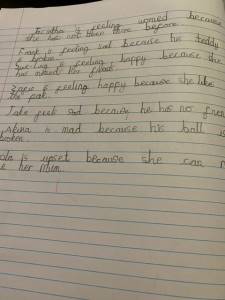 is feeling worried because
she has not been there before
Frank is feeling sad because his teddy
is broken
is feeling happy because she
has missed her friend
is feeling happy because she like
the park
Jake feels sad because he has no frien
is mad because his ball is
broken.
is upset because she can n
e her mum.